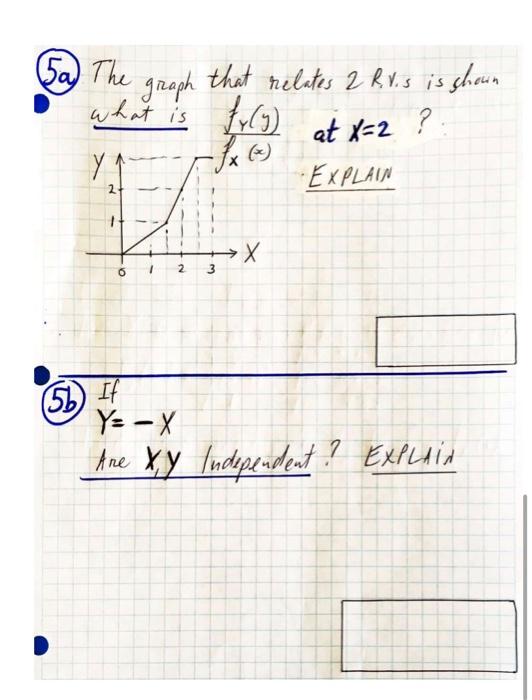 5a The graph that relates 2 R.V.s is shown
what is fY(y)/fX(x) at X=2 ?
EXPLAIN
Y
2
1
0 1 2 3
X
5b If
Y= -X
Are X,Y Independent? EXPLAIN